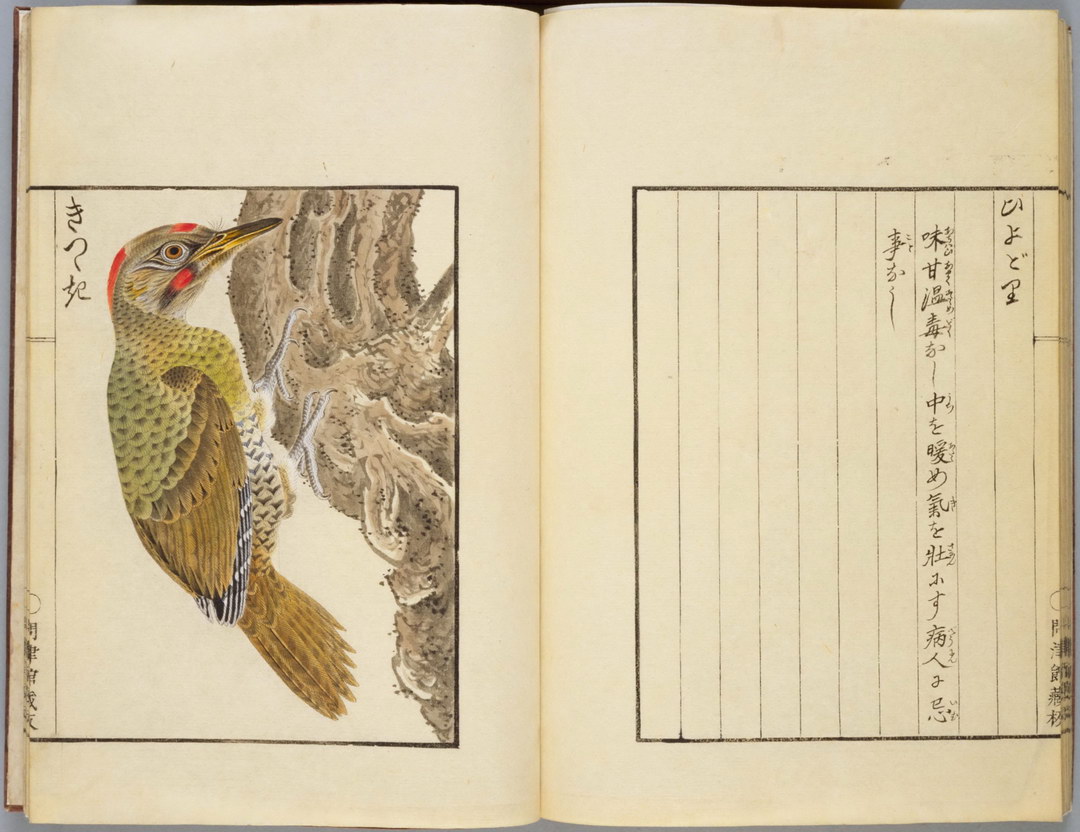 ひよどり
味甘温毒なし中を暖め氣を壮にす病人に忌
事なし
問津館藏板
きつゝき
問津館藏板